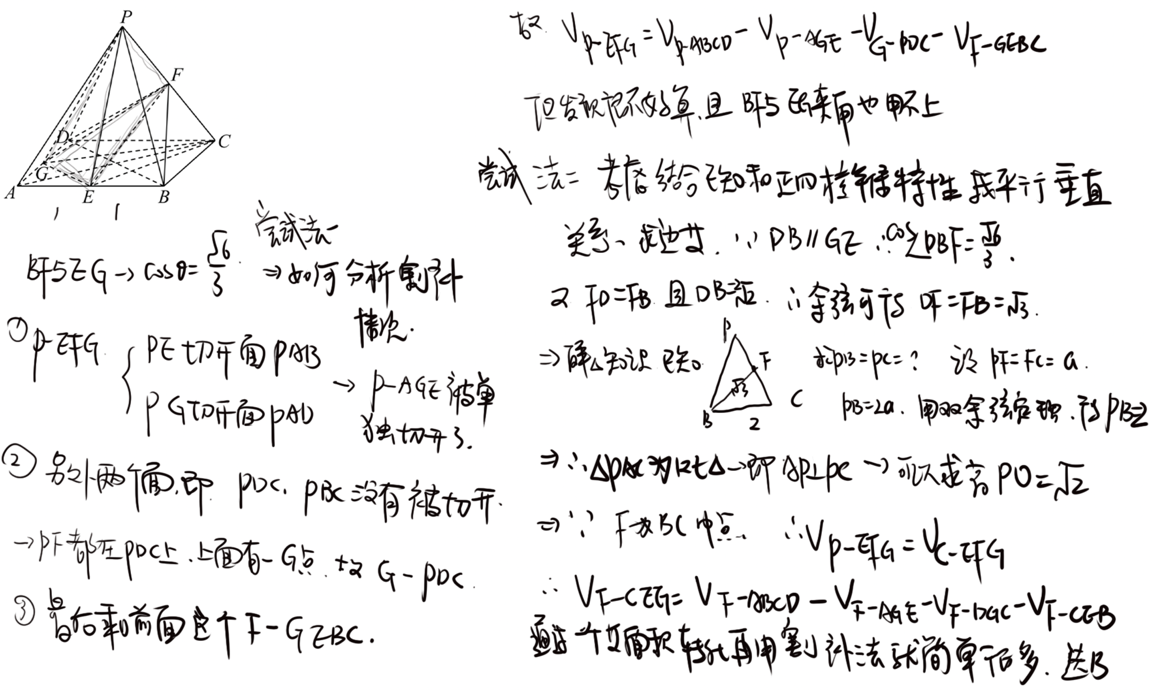 P
F
D
C
G
A
E
B
尝试法一
BF与EG→cosθ=√6/3 ⇒如何分析割补
情况.
① P-EFG { PE切开面PAB
PG切开面PAD
→ P-AGE被单
独切开了.
② 另外两个面,即 PDC, PBC没有被切开.
→PF都在PDC上,上面有一G点,故 G-PDC.
③ 最后剩前面这个F-GEBC.
故 V_{P-EFG}=V_{P-ABCD}-V_{P-AGE}-V_{G-PDC}-V_{F-GEBC}
但发现记不好算,且BF与EG夹角也用不上
尝试法二 考虑结合已知和正四棱锥特性找平行垂直
关系、求边长. ∵DB∥GE ∴cos∠DBF=√6/3.
又 FD=FB 且DB=2√2. ∴余弦可得 DF=FB=√3.
⇒解△知识 已知
P
F
√3
B
2
C
求PB=PC=? 设 PF=FC=a.
PB=2a. 用双余弦定理.得PB=2
⇒∴△PAC为Rt△→即AP⊥PC→可以求高PO=√2
⇒∵ F为BC中点. ∴V_{P-EFG}=V_{C-EFG}
∴ V_{F-CEG}=V_{F-ABCD}-V_{F-AGE}-V_{F-DGC}-V_{F-CEB}
通过个体面积转化再用割补法就简单很多.选B